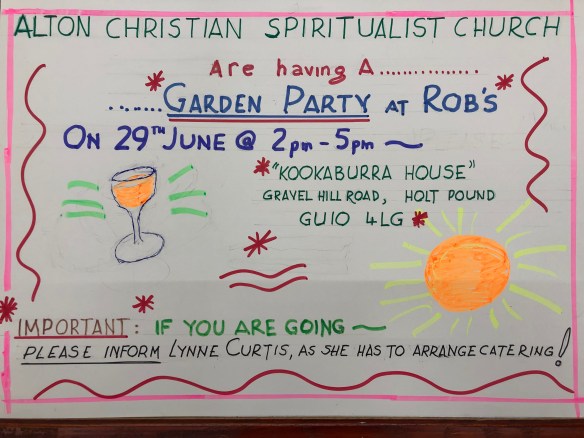 ALTON CHRISTIAN SPIRITUALIST CHURCH
Are having A..............
.......GARDEN PARTY AT ROB'S
ON 29TH JUNE @ 2pm - 5pm ~
"KOOKABURRA HOUSE"
GRAVEL HILL ROAD, HOLT POUND
GU10 4LG
IMPORTANT: IF YOU ARE GOING ~
PLEASE INFORM LYNNE CURTIS, AS SHE HAS TO ARRANGE CATERING!